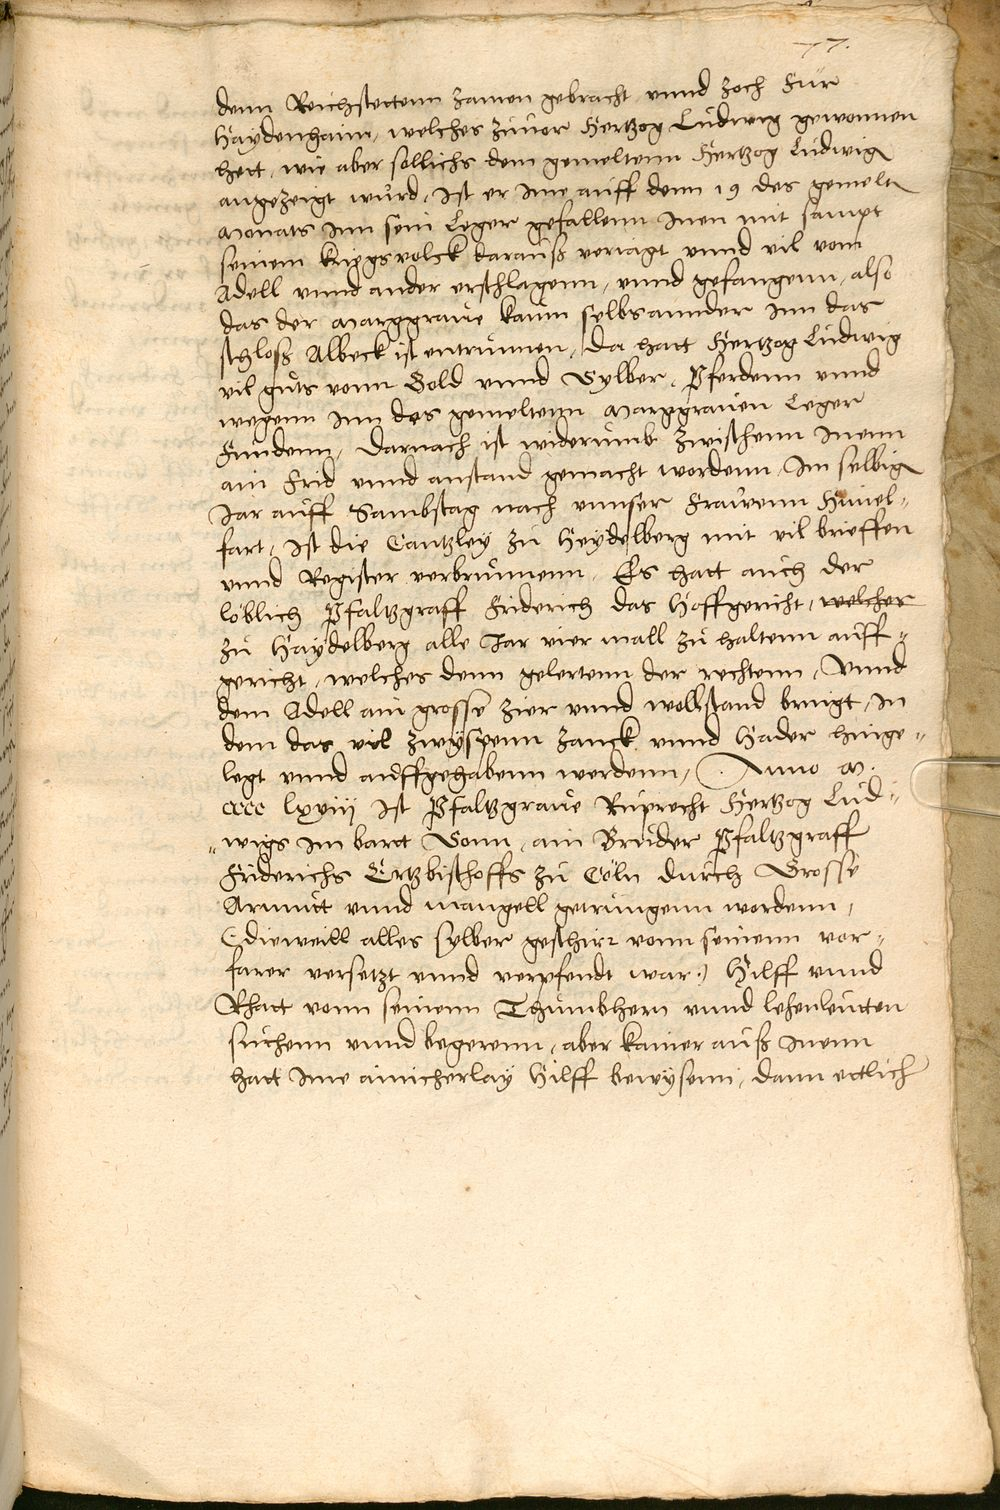 77.
denn Reichstettenn zamen gebracht vnnd zoch Für
Haydenhaim, welches zuuor Hertzog Ludwig gewonnen
hett, wie aber sollichs dem gemeltenn Hertzog Ludwig
angezeigt würd, ist er Ime auff denn 19 des gemelt
Monats Inn sein Leger gefallenn Inen mit sampt
seinem kriegsvolck darauß veriagt vnnd vil vom
Adell vnnd ander erschlagenn, vnnd gefangenn, also
das der Marggraue kaum selbsannder Inn das
schloß Albeck ist entrunnen, Da hatt Hertzog Ludwig
vil guts vonn Gold vnnd Sylber, Pferdenn vnnd
wegenn Inn des gemeltenn Marggrauen Leger
Fundenn, Darnach ist widerumb zwischenn Inenn
ain Frid vnnd anstand gemacht wordenn, Im selbig
Jar auff Sambstag nach vnnser Frawenn Himel-
fart, Ist die Cantzley zu Heydelberg mit vil brieffen
vnnd Register verbrunnenn, Es hatt auch der
löblich Pfaltzgraff Friderich das Hoffgericht, welcher
zu Haydelberg alle Jar vier mall zu haltenn auff-
gericht, welches denn gelertenn der rechtenn, Vnnd
dem Adell ain grosse zier vnnd wollstand bringt, In
dem das vil zwyspenn zanck vnnd Hader hinge-
legt vnnd auffgehabenn werdenn, Anno M.
cccc lxviij Ist Pfaltzgraue Ruprecht Hertzog Lud-
wigs Im bart Sonn, ain Bruder Pfaltzgraff
Friderichs Ertzbischoffs zu Cöln durch Grosse
Armutt vnnd mangell getrungenn wordenn,
(dieweill alles sylber geschirr vonn seinenn vor-
farer versetzt vnnd verpfendt war) Hilff vnnd
Rhatt vonn seinenn Thumbhern vnnd lehenleutten
suchenn vnnd begerenn, aber kainer auß Inenn
hatt Ime ainicherlay Hilff bewysenn, dann ettlich